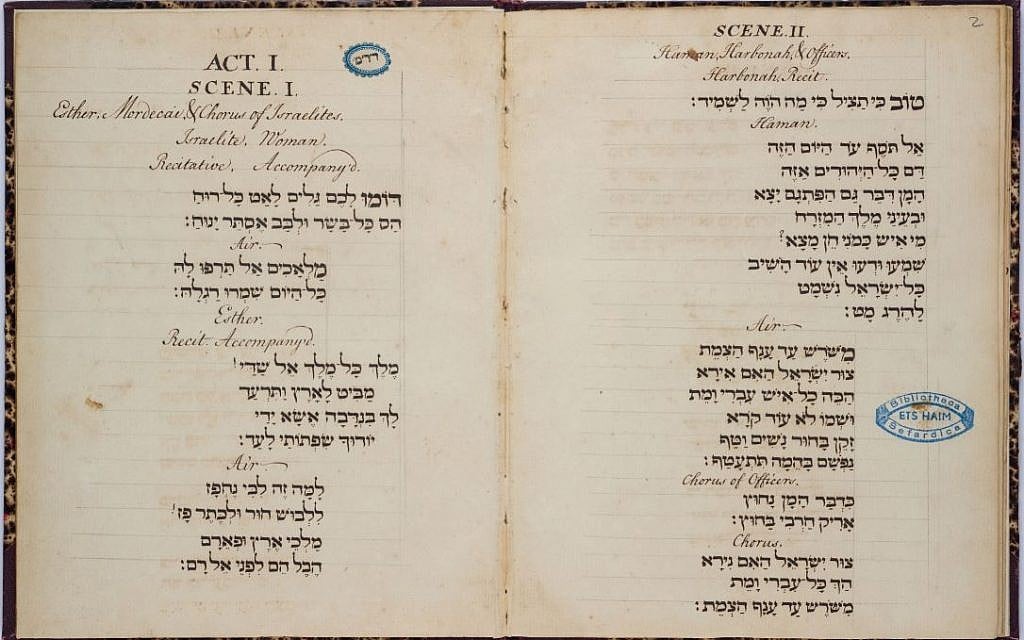 ACT. I.
SCENE. I.
Esther, Mordecai, & Chorus of Israelites.
Israelite, Woman.
Recitative, Accompany'd.
דּוֹמוּ לָכֶם גַּלִּים לָאַט כָּל רוּחַ
הַס כָּל־בָּשָׂר וּלְבַב אֶסְתֵּר יָנוּחַ:
Air.
מַלְאָכִים אַל תַּרְפּוּ לָהּ
כָּל הַיּוֹם שִׁמְרוּ רַגְלָהּ:
Esther.
Recit. Accompany'd.
מֶלֶךְ כָּל־מֶלֶךְ אֵל שַׁדַּי!
מַבִּיט לָאָרֶץ וַתִּרְעָד
לָךְ בִּנְדָבָה אֶשָּׂא יָדַי
יוֹדוּךָ שִׂפְתוֹתַי לָעַד:
Air.
לָמָּה זֶה לִבִּי נֶחְפָּז
לִלְבוּשׁ חוּר וּלְכֶתֶר פָּז!
מַלְכֵי אֶרֶץ וּפְאֵרָם
הֶבֶל הֵם לִפְנֵי אֵל רָם:
2
SCENE. II.
Haman, Harbonah, & Officers.
Harbonah, Recit.
טוֹב כִּי תַצִּיל כִּי מַה הֹוֶה לַשְׁמִיד:
Haman.
אַל תֹּסֶף עֹד הַיּוֹם הַזֶּה
דַּם כָּל־הַיְּהוּדִים אַזֶּה
הָמָן דִּבֶּר גַּם הַפִּתְגָם יָצָא
וּבְעֵינֵי מֶלֶךְ הַמִּזְרָח
מִי אִישׁ כָּמֹנִי חֵן מָצָא?
שִׁמְעוּ וּדְעוּ אֵין עוֹד הָשִׁיב
כָּל־יִשְׂרָאֵל נִשְׁמַט
לַהֶרֶג מָט:
Air.
מִשֹּׁרֶשׁ עַד עָנָף הַצְמֵת
צוּר יִשְׂרָאֵל הַאִם אִירָא
הַכֵּה כָל־אִישׁ עִבְרִי וָמֵת
וּשְׁמוֹ לֹא עוֹד קֹרָא
זָקֵן בָּחוּר נָשִׁים וָטַף
נַפְשָׁם בַּהֵמָּה תִּתְעַטָּף:
Chorus of Officers.
כִּדְבַר הָמָן נָחוּץ
אָרִיק חַרְבִּי בַּחוּץ:
Chorus.
צוּר יִשְׂרָאֵל הַאִם נִירָא
הַךְ כָּל־עִבְרִי וָמֵת
מִשֹּׁרֶשׁ עַד עָנָף הַצְמֵת:
Bibliotheca
ETS HAIM
Sefardica